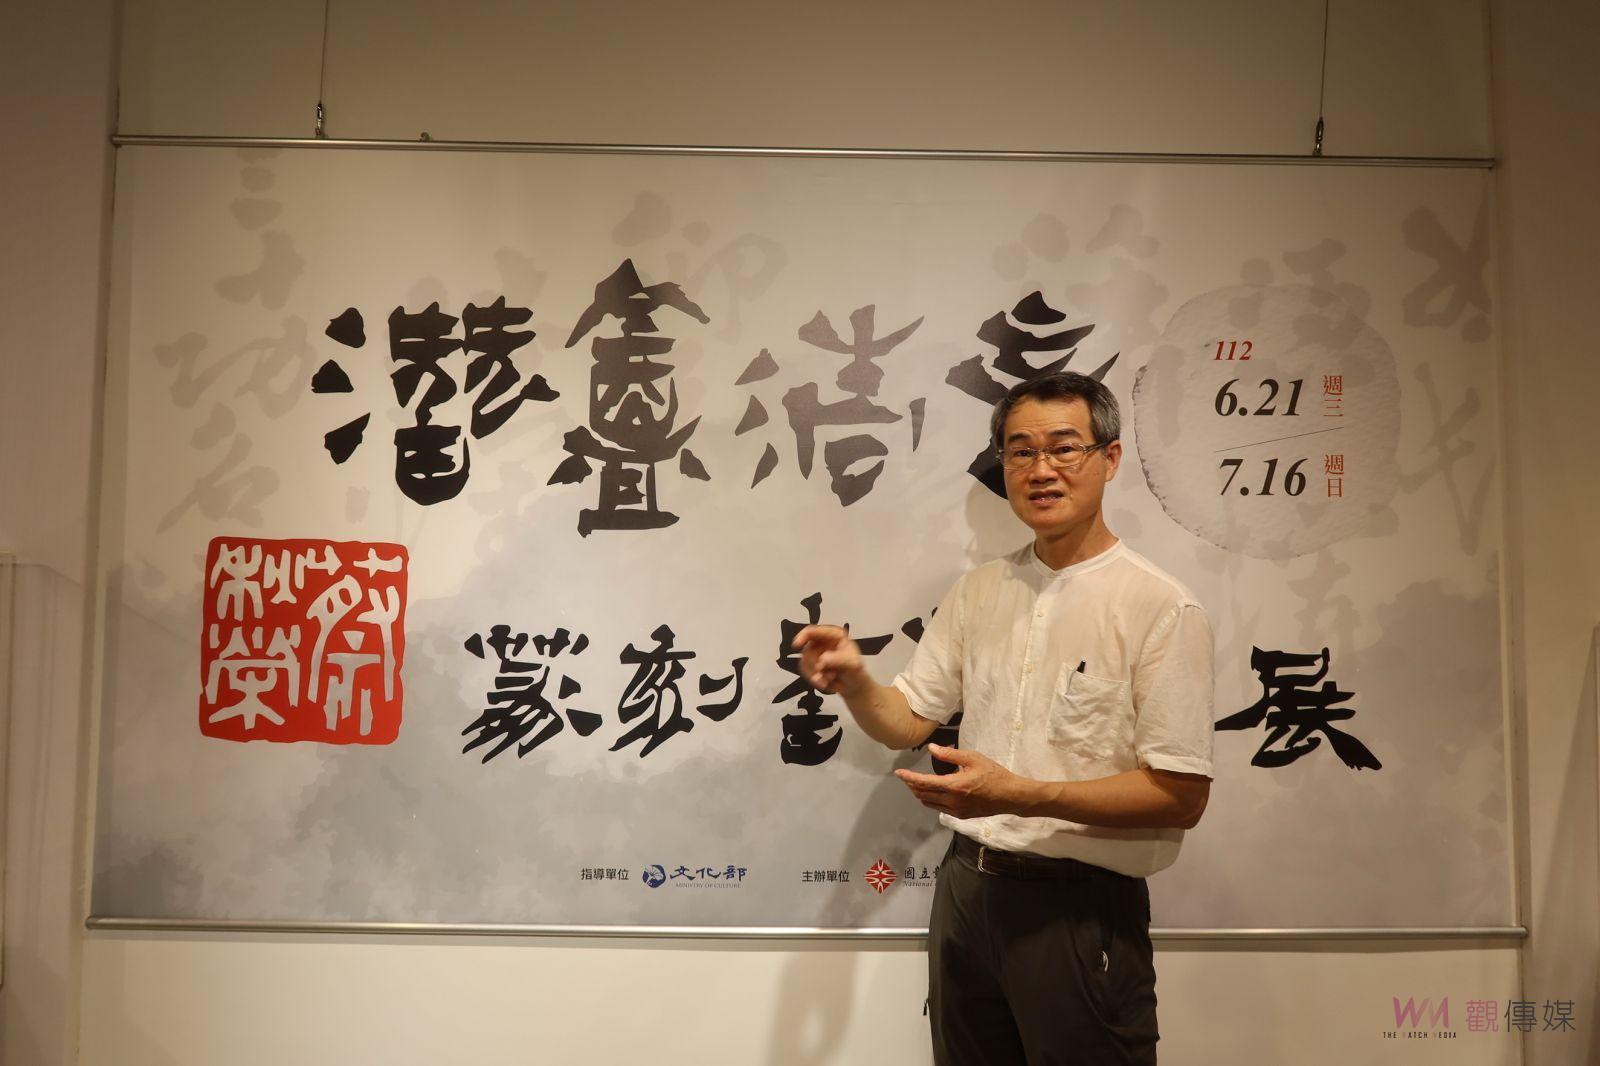 潛盦清
112
6.21 週三
7.16 週日
蔡秋榮
篆刻書 展
指導單位 文化部 MINISTRY OF CULTURE
主辦單位 國立 National
WM 觀傳媒
THE WATCH MEDIA